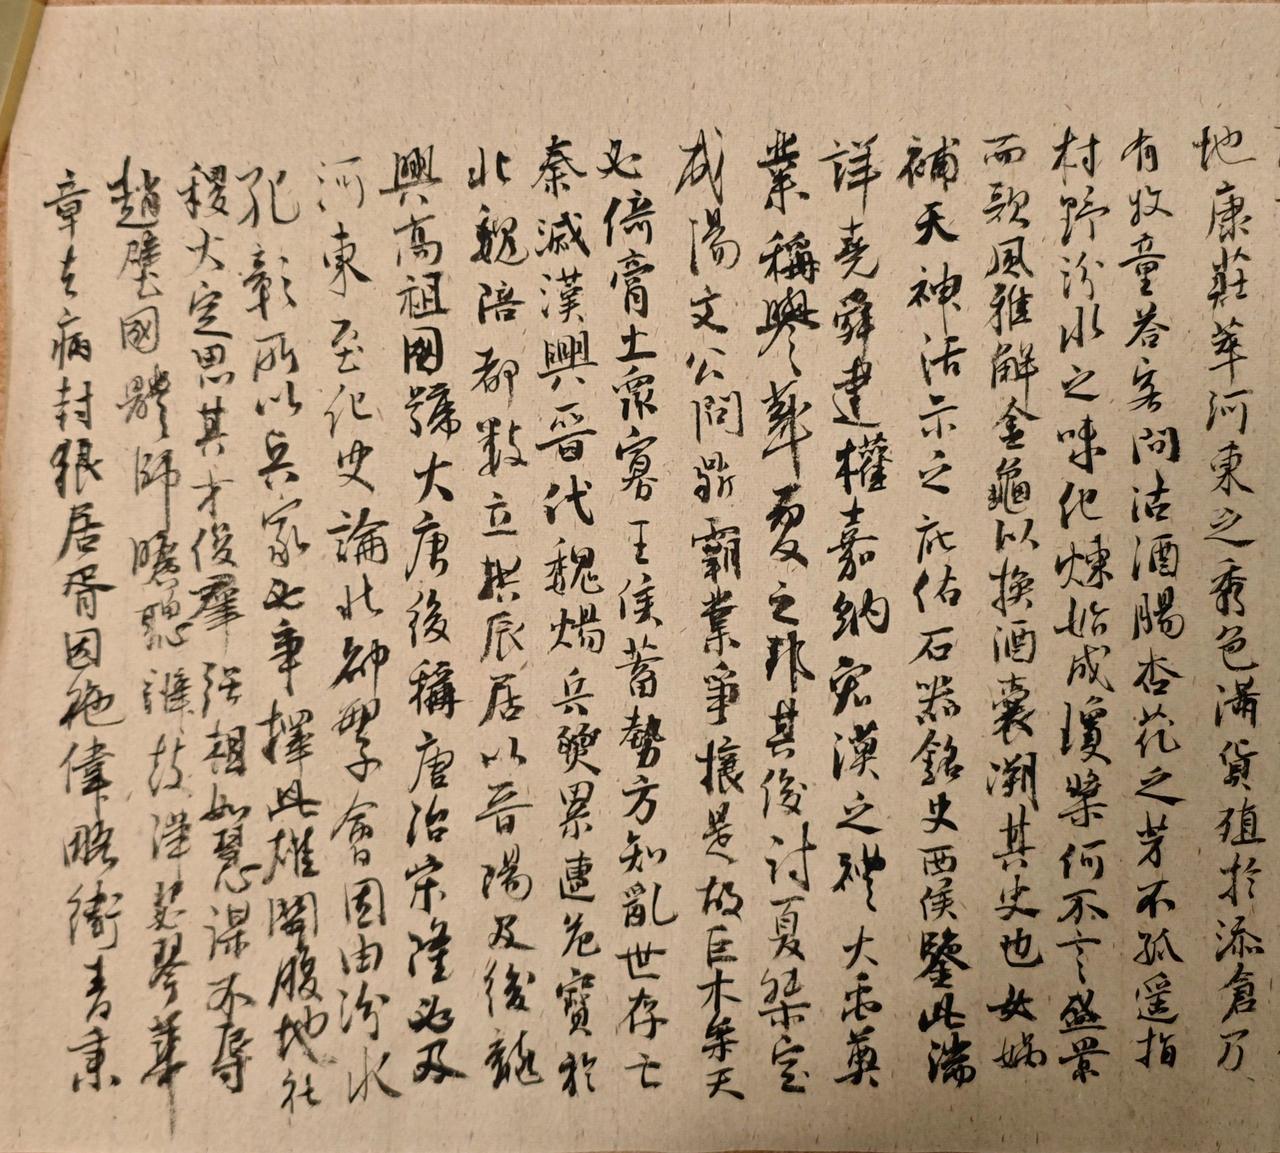 地康莊萃河東之秀色滿貨殖於添倉乃
有牧童答客問沽酒腸杏花之芳不孤遥指
村野汾水之味化煉始成瓊漿何不言盛景
而歌風雅解金龜以換酒囊溯其史也女媧
補天神活示之庇佑石器銘史西侯鑒此濡
詳堯舜建權嘉納宏漠之禮大禹奠
業稱譽華夏之邦其後討夏桀定
咸陽文公問鼎霸業爭攘是故巨木參天
必倚膏土衆寡王侯蓄勢方知亂世存亡
秦滅漢興晉代魏煬兵燹累遭危寶於
北魏陪都數立拱辰居以晉陽及後龍
興高祖國號大唐後稱唐治宗隆必及
河東至化史論北都聖會固由汾水
孔彰所以兵家必爭擇此雄關腹地社
稷大定思其才俊群强相如慧深不辱
趙璧國體師曠聰 琴華
章去病封狼居胥因施偉略衛青秉